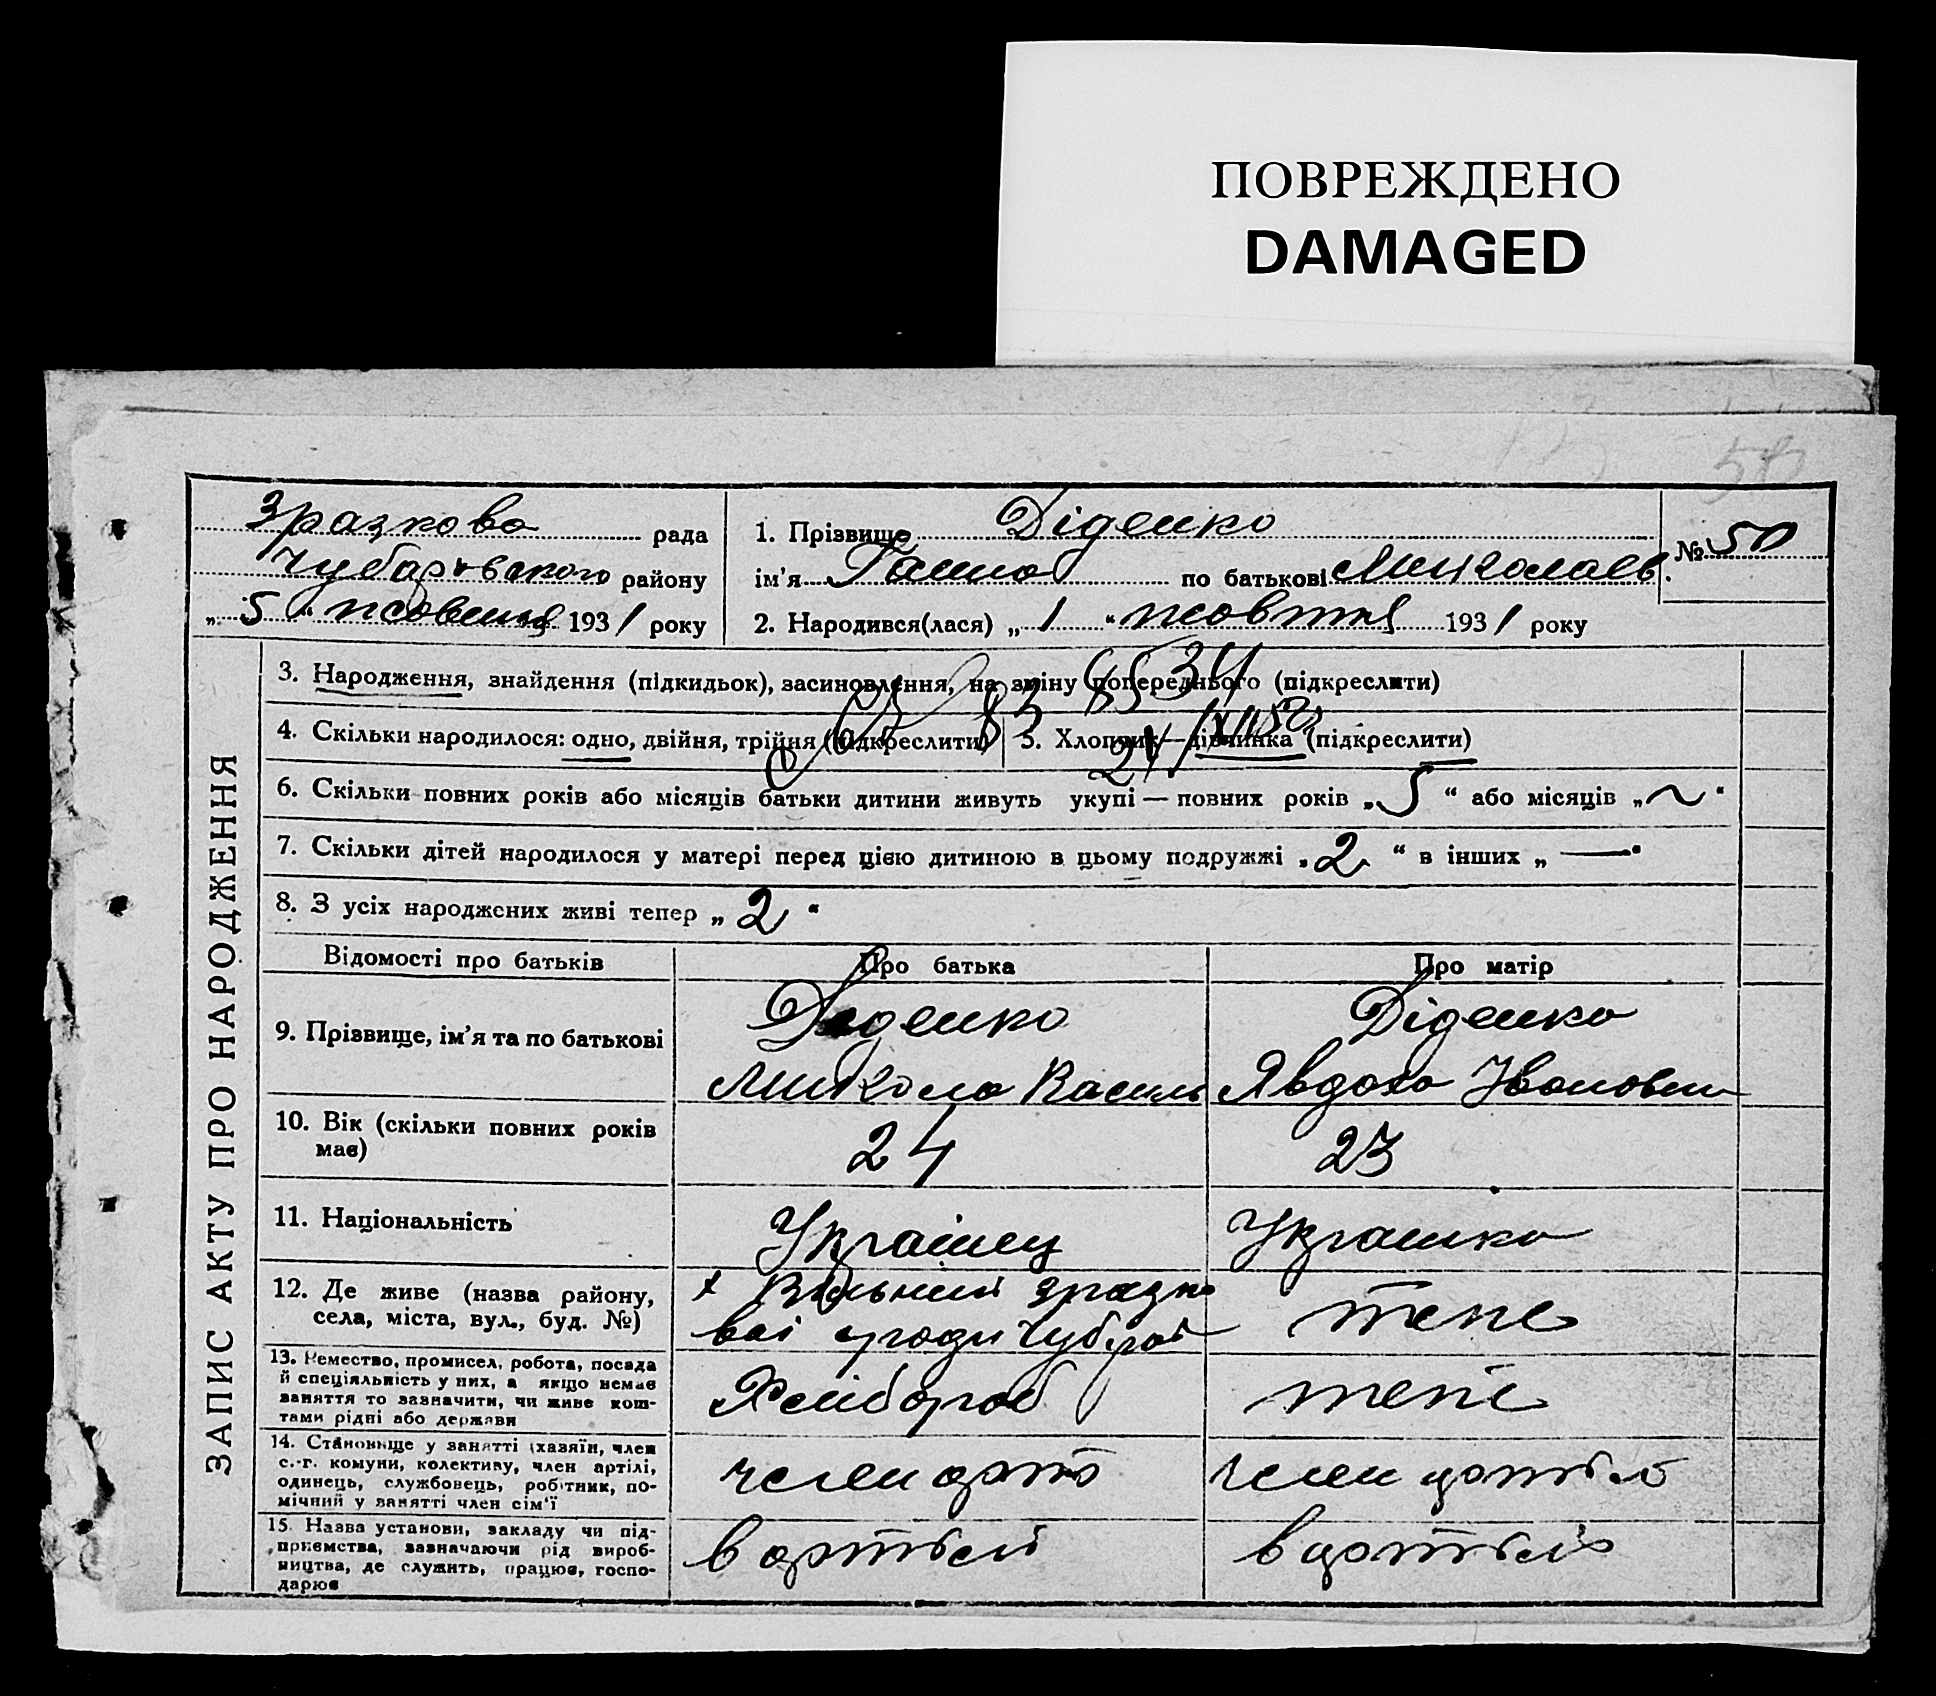 ПОВРЕЖДЕНО
DAMAGED
50
Зразкова рада
Чубарівського району
„ 5 “ жовтня 1931 року
1. Прізвище Діденко
ім’я Ганна по батькові Миколаєв.
№ 50
2. Народився(лася) „ 1 “ жовтня 1931 року
ЗАПИС АКТУ ПРО НАРОДЖЕННЯ
3. Народження, знайдення (підкидьок), засиновлення, на зміну попереднього (підкреслити)
4. Скільки народилося: одно, двійня, трійня (підкреслити)
5. Хлопчик—дівчинка (підкреслити)
6. Скільки повних років або місяців батьки дитини живуть укупі — повних років „ 5 “ або місяців „ ~ “
7. Скільки дітей народилося у матері перед цією дитиною в цьому подружжі „ 2 “ в інших „ — “
8. З усіх народжених живі тепер „ 2 “
Відомості про батьків Про батька Про матір
9. Прізвище, ім’я та по батькові
Діденко
Микола Василь
Діденко
Явдоха Івановна
10. Вік (скільки повних років має)
24
23
11. Національність
Українец
Українка
12. Де живе (назва району,
села, міста, вул., буд. №)
х Вільний зразко
вої ради Чубров
теже
13. Ремество, промисел, робота, посада
й спеціяльність у них, а якщо немає
заняття то зазначити, чи живе кош-
тами рідні або держави
Хлібороб
теже
14. Становище у занятті (хазяїн, член
с.-г. комуни, колективу, член артілі,
одинець, службовець, робітник, по-
мічний у занятті член сім’ї
член арті
член артілі
15. Назва установи, закладу чи під-
приємства, зазначаючи рід вироб-
ництва, де служить, працює, госпо-
дарює
в артілі
в артілі